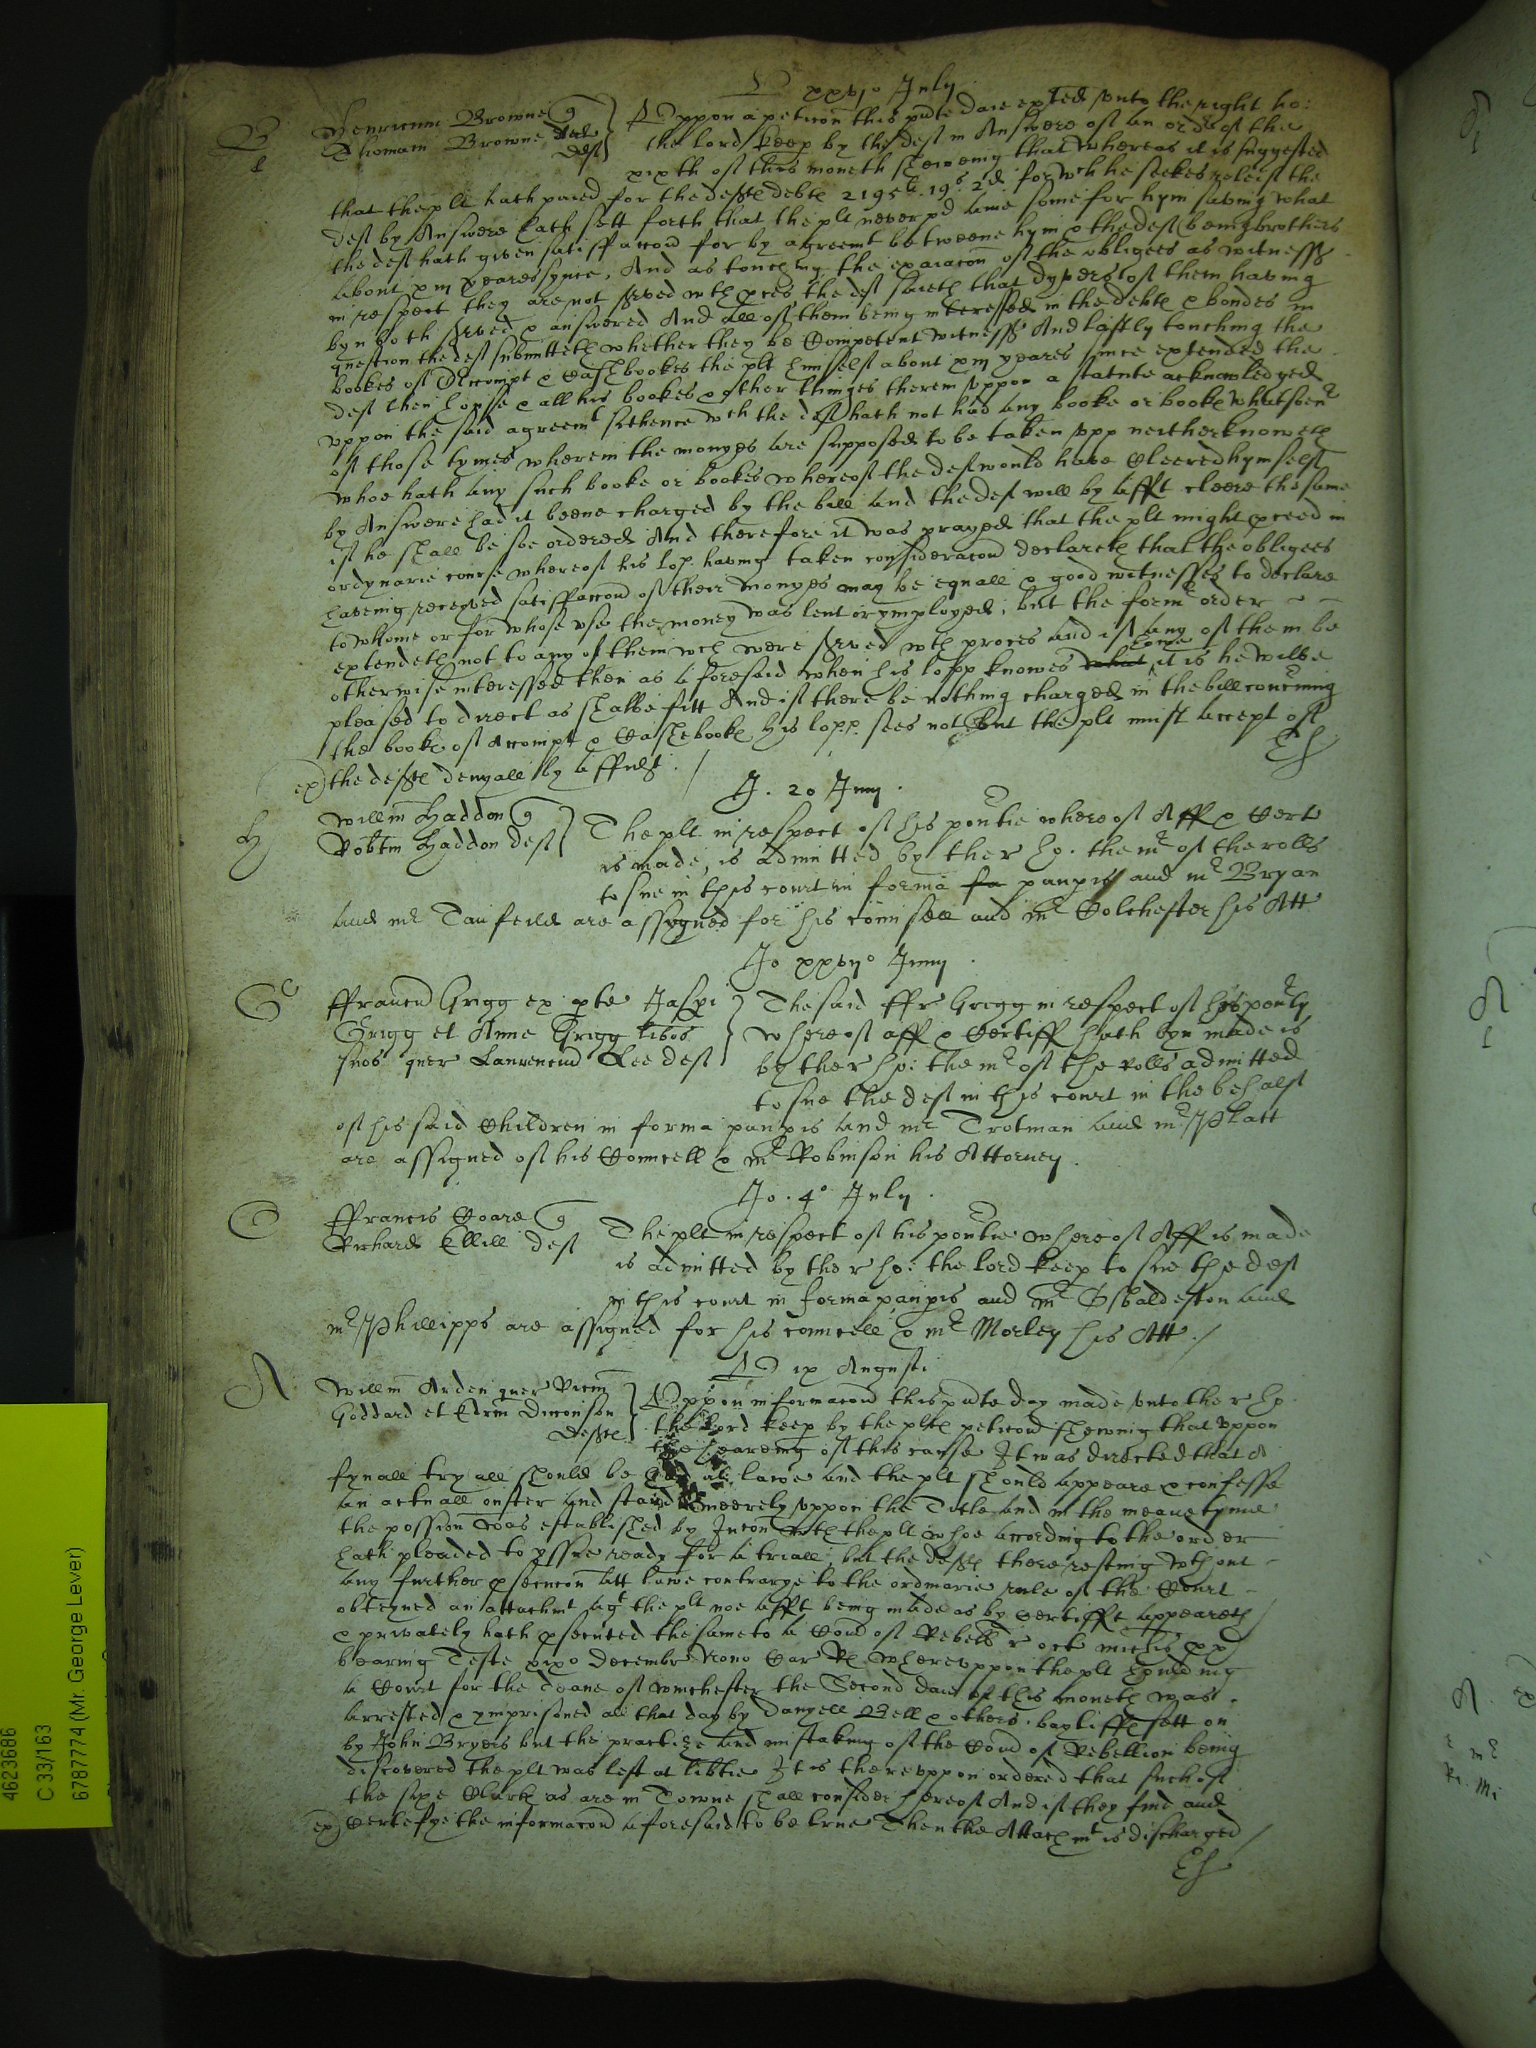 D xxvj° July
B
Henricum Browne q
Thomam Browne def
Uppon a peticon this pnte daie exhibited unto the right ho:
the lord keep by the deft in Answere of an order of the
xixth of this moneth shewing that whereas it is suggested
that the plt hath paied for the defts debte 2195li 19s 2d for wch he seekes releif the
deft by Answere hath sett forth that the plt never pd anie some for hym saving what
the deft hath given satisfaccon for by agreemt betweene hym & the deft (being brothers
about xiij yeares synce, And as touching the examacon of the obligees as witnesses
in respect they are not served wth proces the deft saieth that dyvers of them having
byn both served & answered And all of them being interessed in the debte & bondes in
question the deft submitteth whether they be Competent witnesses And lastly touching the
bookes of Accompt & Cashbookes the plt himself about xiij yeares since extended the
deft then howse & all his bookes & other thinges therein uppon a statute acknowledged
uppon the said agreemt sithence wch the deft hath not had any booke or bookes whatsoever
of those tymes wherein the monyes are supposed to be taken upp neither knoweth
whoe hath any such booke or bookes whereof the deft would have Cleered hymself
by Answere had it beene charged by the bill and the deft will by afft cleere the same
if he shall be soe ordered And therefore it was prayed that the plt might proceed in
ordynarie course whereof his lop. having taken consideracon declareth that the obligees
haveing receyved satisfaccon of their monyes may be equall & good witnesses to declare
to whome or for whose use the money was lent or ymployed, but the formr order
extendeth not to any of them wch were served wth proces and if any of them be
otherwise interessed then as aforesaid when his lopp knowes what howe it is he wilbe
pleased to direct as shalbe fitt And if there be nothing charged in the bill concerning
the bookes of Accompt & Cashebookes his lopp. sees not but the plt must accept of
ex) the defts denyall by affidt. / Eh
J. 20 Junij.
H
Willm Haddon q
Robtm Haddon deft
The plt in respect of his povertie whereof Aff & Cert
is made, is admitted by the r ho. the mr of the rolls
to sue in this court in forma fa paupis and mr Bryan
and mr Tanfeild are assigned for his counsell and mr Colchester his Att
Jo xxvij° Junij.
G
ffrancu Grigg ex pte Jaspi
Grigg et Anne Grigg libos
suos quer Laurenciu Lee deft
The said ffr Grigg in respect of his povrty
whereof aff & Certiff hath byn made is
by the r ho: the mr of the rolls admitted
to sue the deft in this court in the behalf
of his said Children in forma paupis and mr Trotman and mr Platt
are assigned of his Councell & mr Robinson his Attorney.
Jo. 4° July.
C
ffrancis Coare q
Richard Ellill deft
The plt in respect of his povertie whereof Aff is made
is admitted by the r ho: the lord keep to sue the deft
in this court in forma paupis and mr Osbaldeston and
mr Phillipps are assigned for his councell & mr Morley his Att. /
D ix Augusti
A
Willm Arden quer Ricm
Goddard et Edrm Diconson
defts
Uppon informacon this pnte day made unto the r ho.
the lord keep by the plts peticon shewing that uppon
the heareing of this cause It was directed that a
fynall tryall should be had at lawe and the plt should appeare & confesse
an actuall ouster and stand meerely uppon the Title and in the meane tyme
the possion was established by Iniccon wth the plt whoe according to the order
hath pleaded to yssue ready for a triall, but the defts there resting wthout
any further psecucon att lawe contrarye to the ordinarie rule of the Court
obteyned an attachmt agt the plt noe afft being made as by certifft appeareth
& privately hath psecuted the same to a Comd of Rebelln r oct michis xx
bearing Teste xix° Decembr Nono Car Rs whereuppon the plt houlding
a Court for the Deane of winchester the Second daie of this moneth was
arrested & ymprisoned all that day by Danyell Bell & others bayliffs sett on
by John Bryers but the practize and mistaking of the Comd of Rebellion being
discovered the plt was left at libtie It is thereuppon ordered that such of
the sixe Clarkes as are in Towne shall consider hereof And if they find and
ex) Certefye the informacon aforesaid to be true Then the Attachmt is discharged /
Eh
4623686
C 33/163
6787774 (Mr. George Lever)